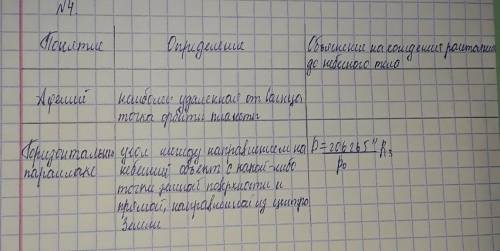 №4.
Понятие
Определение
Объяснение нахождения расстояния
до небесного тела
Афелий
наиболее удаленная от Солнца
точка орбиты планеты
Горизонтальный
параллакс
угол между направлением на
небесный объект с какой-либо
точки земной поверхности и
прямой, направленной из центра
Земли
D = 206265" R₃
p₀